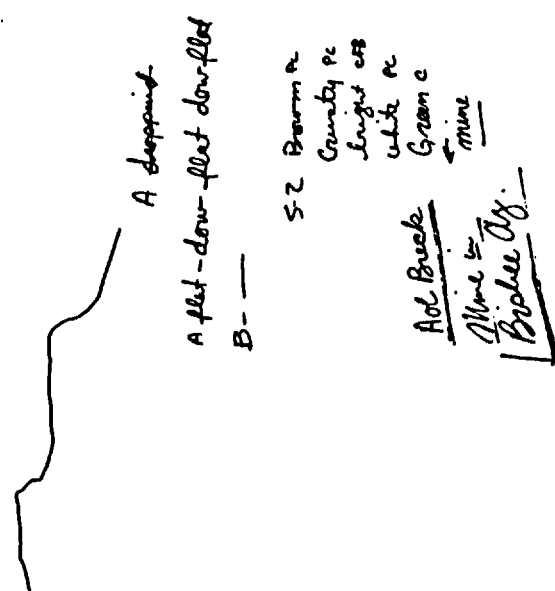 A dropping
A flat-dow-flat dow-flat
B-
S-2 Brown PC
County PC
bright
white PC
Green c
mine
Aol Break
Mine in
Bisbee Az.